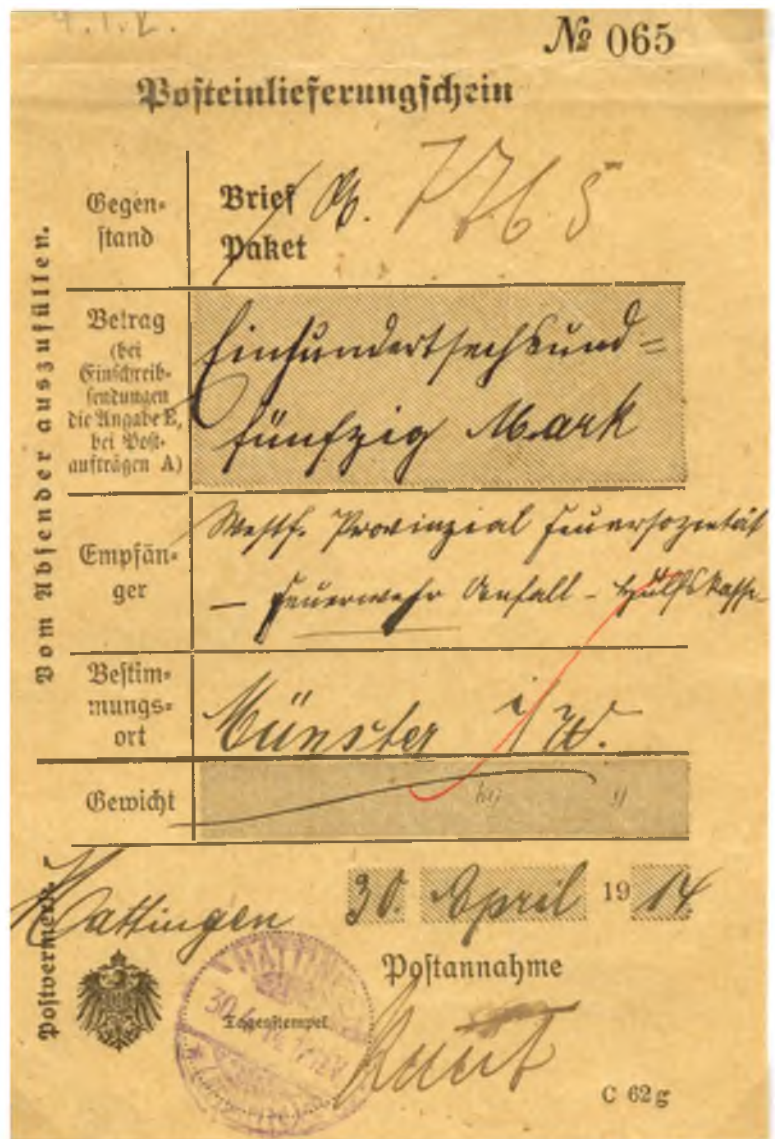 № 065
Posteinlieferungschein
Vom Absender auszufüllen.
Gegen-
stand
Brief
Paket
7765
Betrag
(bei
Einschreib-
sendungen
die Angabe E,
bei Post-
aufträgen A)
Einhundertsechsund=
fünfzig Mark
Empfän-
ger
Westf. Provinzial Feuersozietät
— Feuerwehr Unfall - Hülfskasse
Bestim-
mungs-
ort
Münster i/W.
Gewicht
kg g
Postvermerk.
Hattingen 30. April 1914
Postannahme
HATTINGEN
30.4.14
Tagesstempel
C 62g